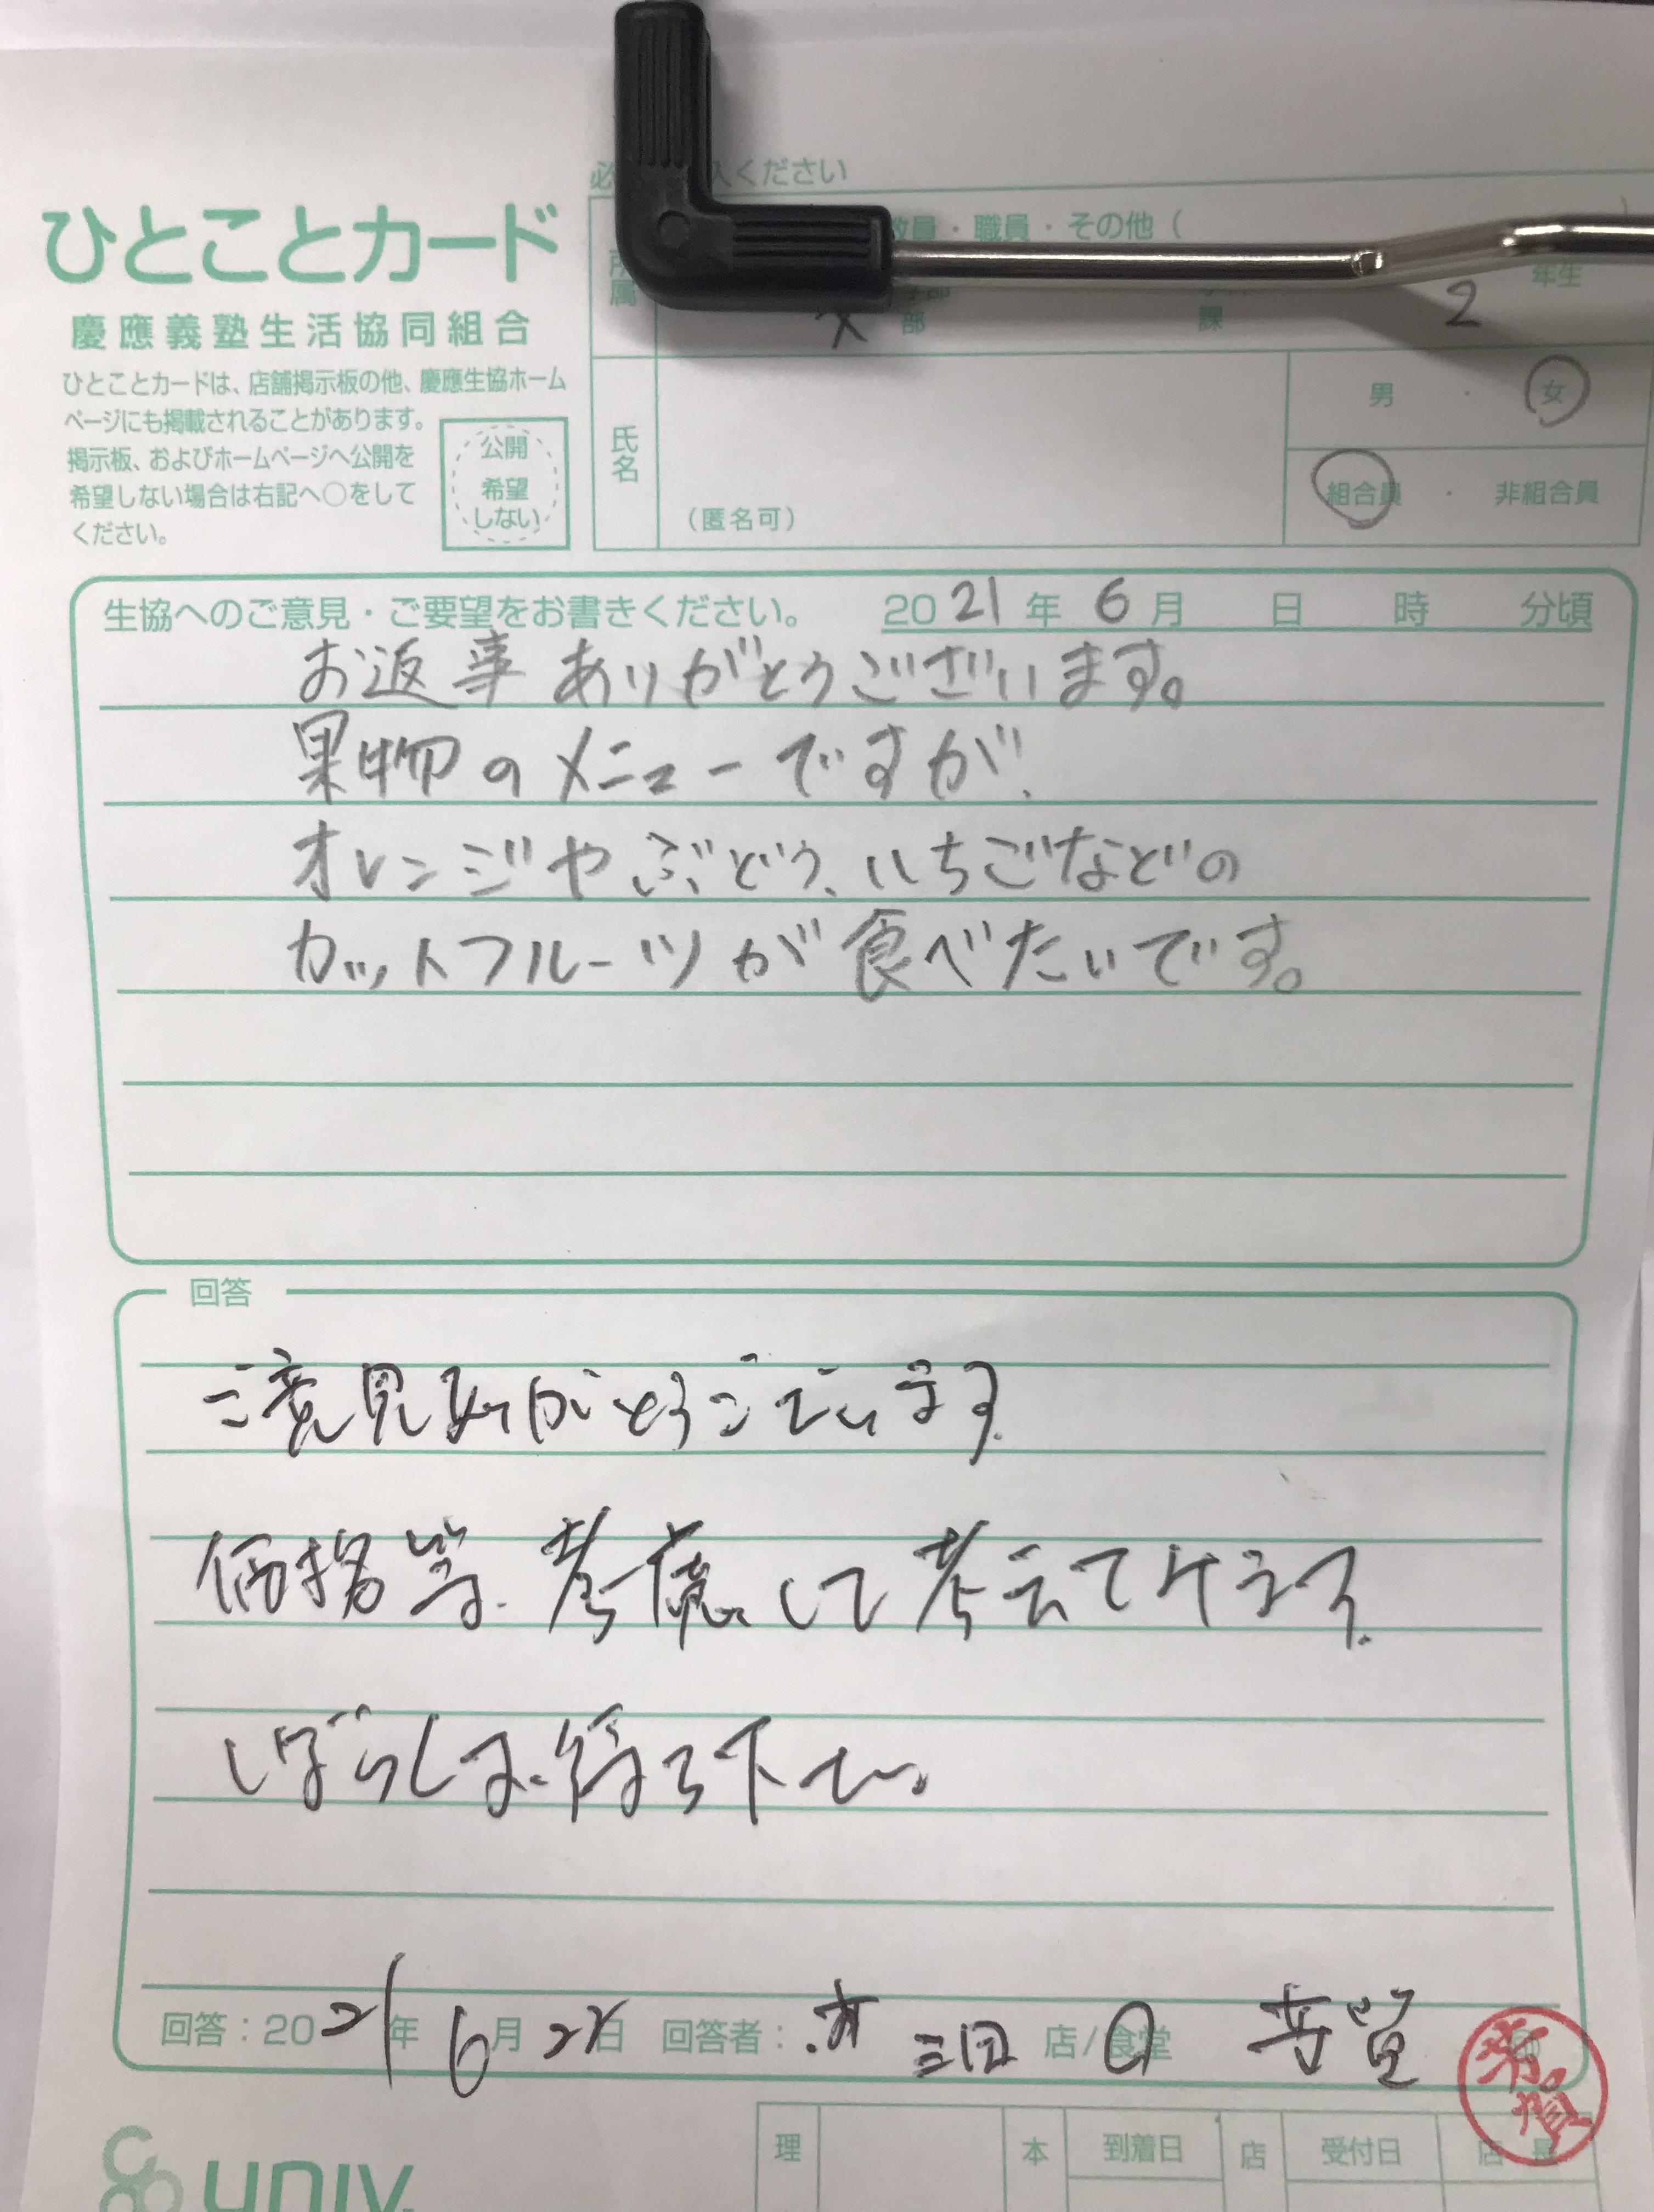 入ください
ひとことカード
慶應義塾生活協同組合
ひとことカードは、店舗掲示板の他、慶應生協ホーム
ページにも掲載されることがあります。
掲示板、およびホームページへ公開を
希望しない場合は右記へ○をして
ください。
公開
希望
しない
所属
教員・職員・その他(
文
部
課
2
年生
氏名
(匿名可)
男・女
組合員・非組合員
生協へのご意見・ご要望をお書きください。 2021年6月 日 時 分頃
お返事ありがとうございます。
果物のメニューですが、
オレンジやぶどう、いちごなどの
カットフルーツが食べたいです。
回答
ご意見ありがとうございます。
価格等、考慮して考えてみます。
しばらくお待ち下さい。
回答:2021年6月22日 回答者: 三田 店/食堂
理
本
到着日
店
受付日
店長
univ.